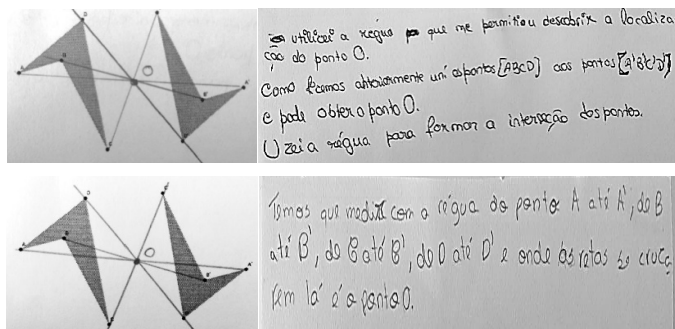 utilizei a régua que me permitiu descobrir a localiza
ção do ponto O.
Como fizemos anteriormente uni os pontos [ABCD] aos pontos [A'B'C'D']
e pode obter o ponto O.
Uzei a régua para formar a interseção dos pontos.
Temos que medir com a régua do ponto A até A', do B
até B', do C até C', do D até D' e onde as retas se cruza
rem lá é o ponto O.